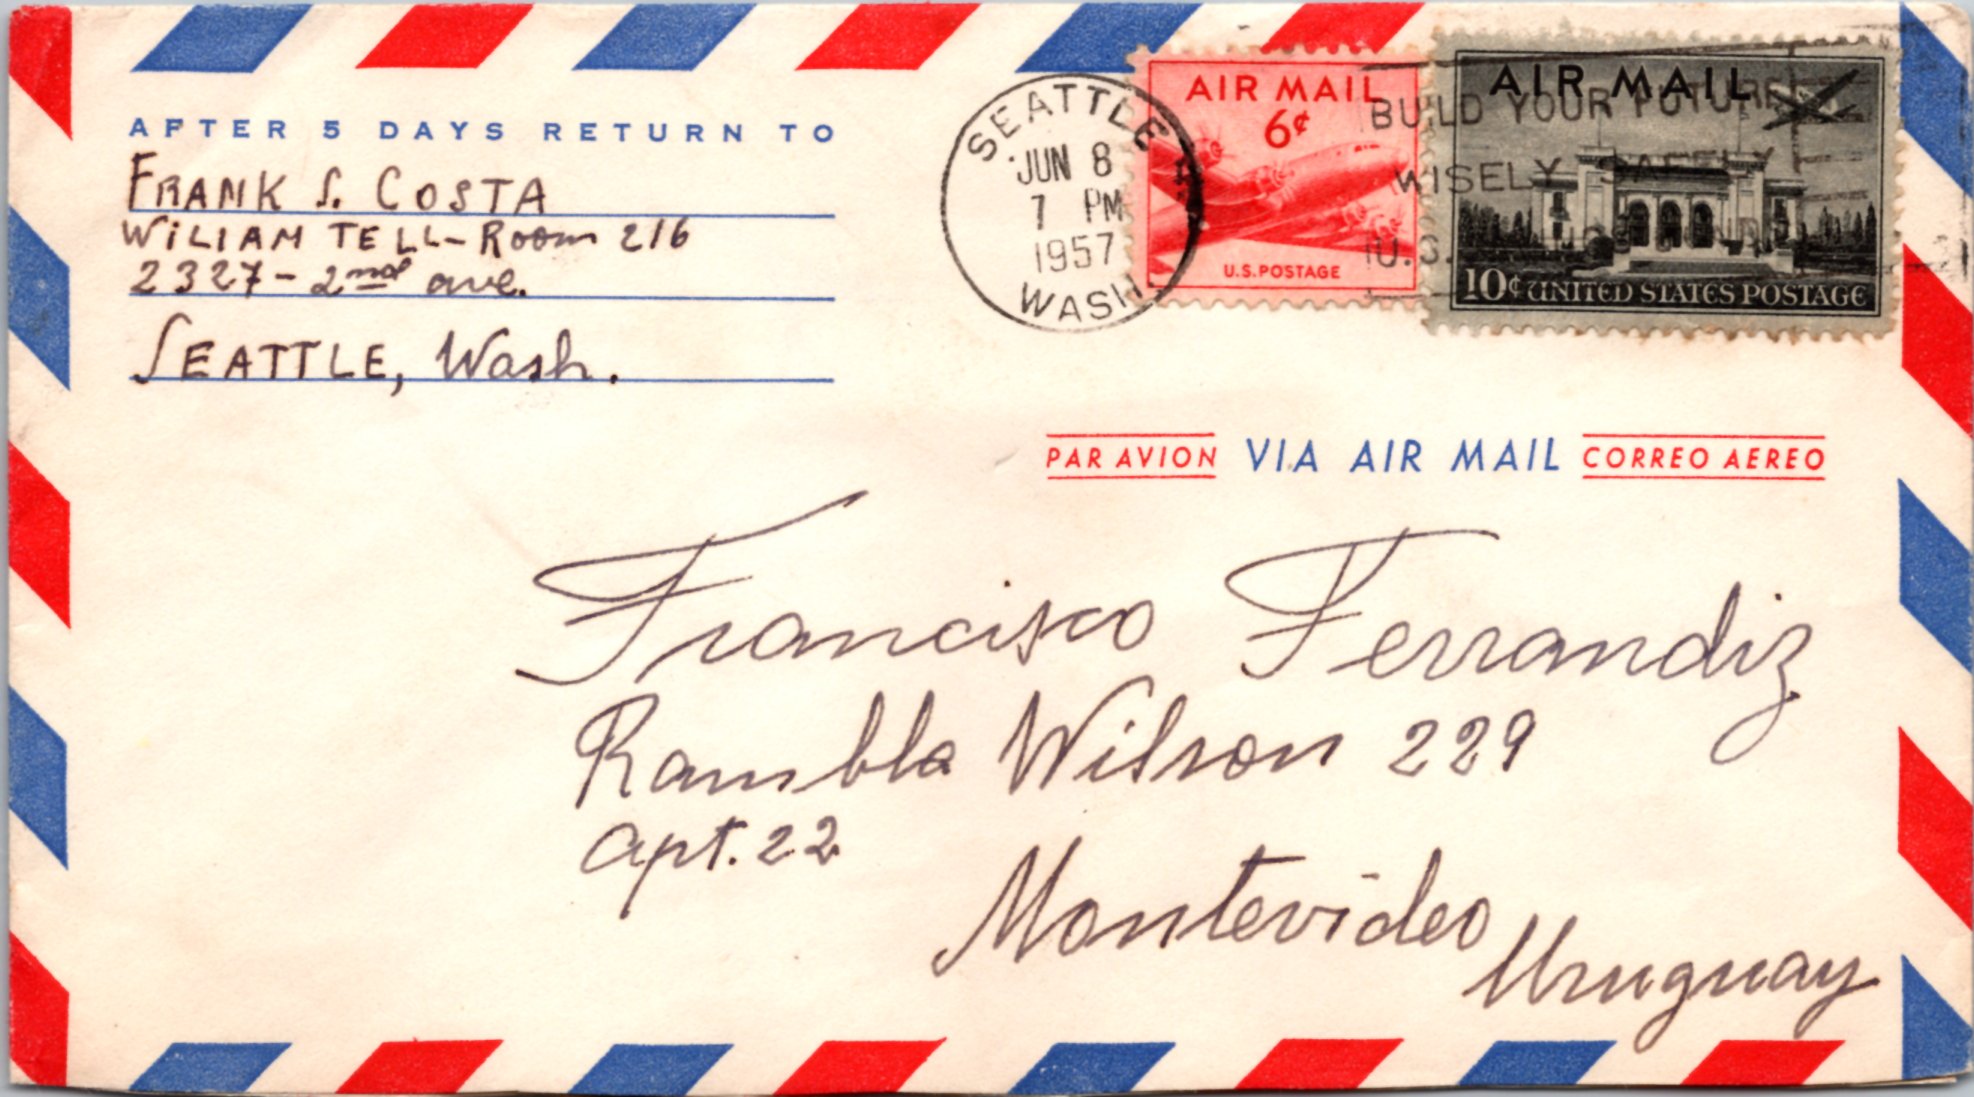 AFTER 5 DAYS RETURN TO
FRANK S. COSTA
WILIAM TELL - Room 216
2327 - 2nd ave.
SEATTLE, Wash.
SEATTLE
JUN 8
7 PM
1957
WASH.
AIR MAIL
6¢
U.S. POSTAGE
AIR MAIL
10¢ UNITED STATES POSTAGE
BUILD YOUR FUTURE
WISELY SAFELY
U.S.
PAR AVION VIA AIR MAIL CORREO AEREO
Francisco Ferrandiz
Rambla Wilson 229
apt. 22
Montevideo
Uruguay